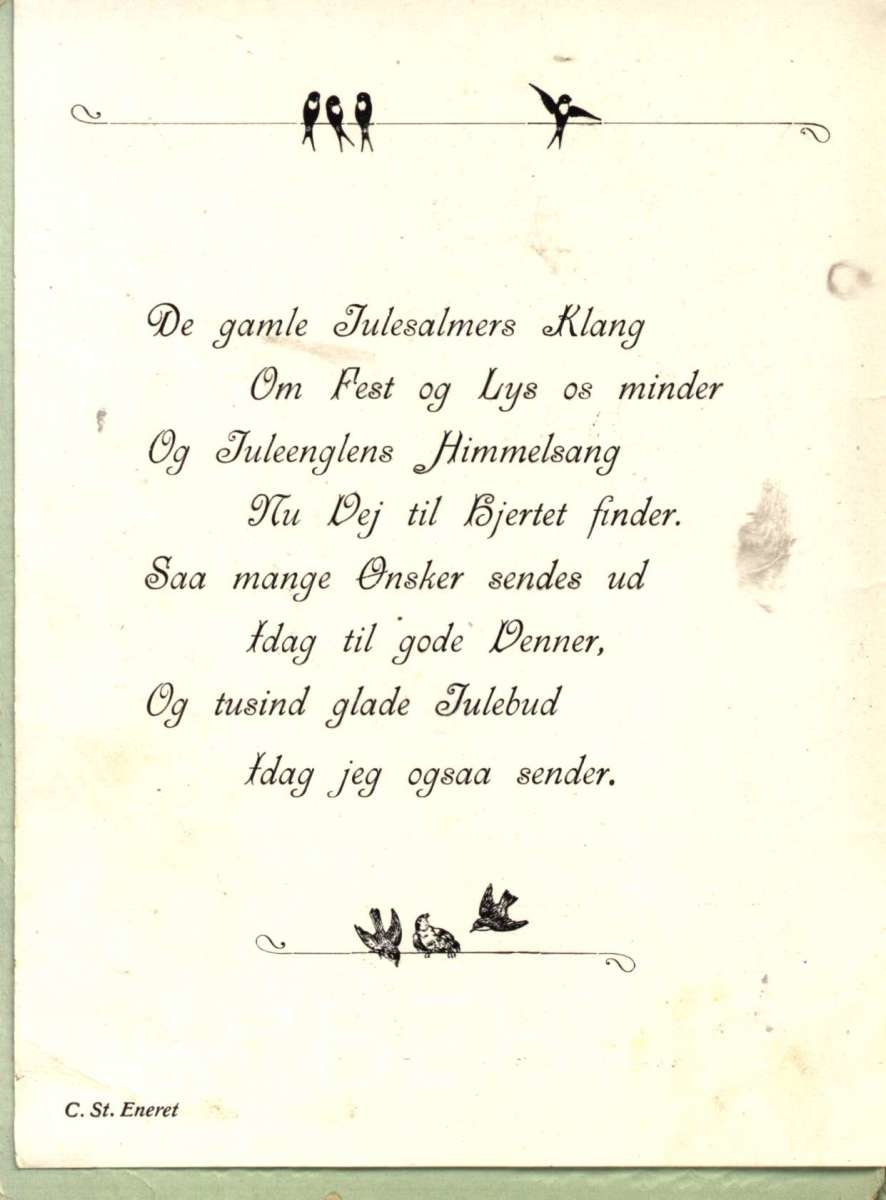 De gamle Julesalmers Klang
Om Fest og Lys os minder
Og Juleenglens Himmelsang
Nu Vej til Hjertet finder.
Saa mange Ønsker sendes ud
Idag til gode Venner,
Og tusind glade Julebud
Idag jeg ogsaa sender.
C. St. Eneret